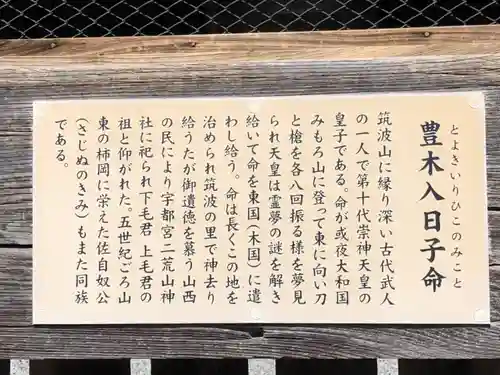 とよきいりひこのみこと
豊木入日子命
筑波山に縁り深い古代武人
の一人で第十代崇神天皇の
皇子である。命が或夜大和国
みもろ山に登って東に向い刀
と槍を各八回振る様を夢見
られ天皇は霊夢の謎を解き
給いて命を東国（木国）に遣
わし給う。命は長くこの地を
治められ筑波の里で神去り
給うたが御遺徳を慕う山西
の民により宇都宮二荒山神
社に祀られ下毛君 上毛君の
祖と仰がれた。五世紀ごろ山
東の柿岡に栄えた佐自奴公
（さじぬのきみ）もまた同族
である。